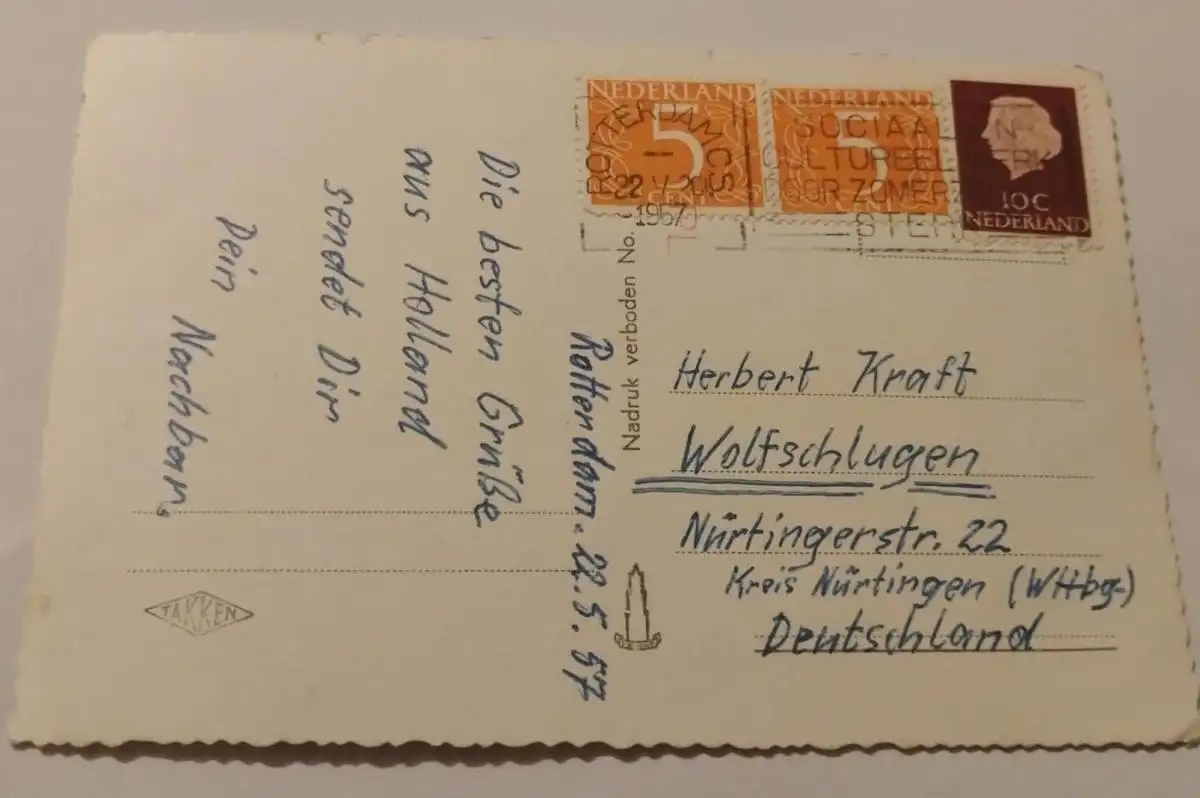 Rotterdam. 22. 5. 57
Die besten Grüße
aus Holland
sendet Dir
Dein
Nachbar.
TAKKEN
Nadruk verboden No.
NEDERLAND
5
CENT
NEDERLAND
5
CENT
10 C
NEDERLAND
ROTTERDAM CS
22
1957
SOCIAAL EN
CULTUREEL WERK
DOOR ZOMERZEGELS
STERK
Herbert Kraft
Wolfschlugen
Nürtingerstr. 22
Kreis Nürtingen (Wttbg.)
Deutschland